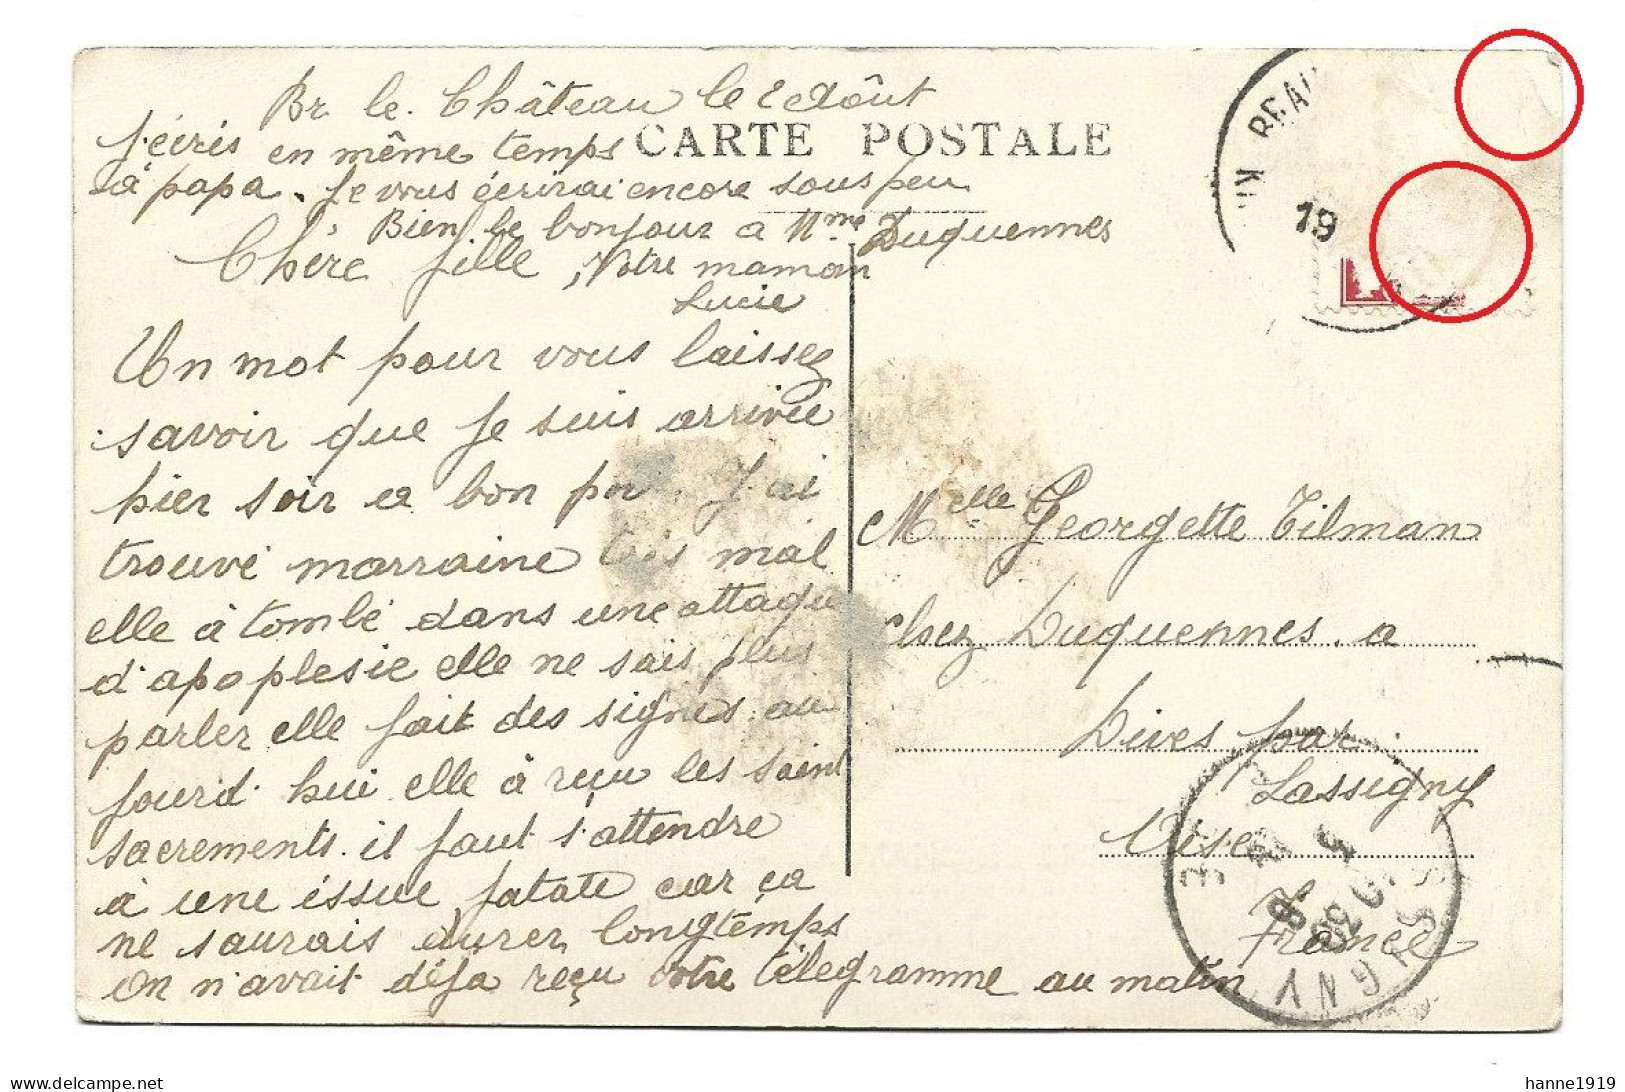 Br. le. Château le 2 Août
J'écris en même temps
à papa. Je vous écrirai encore sous peu
Bien le bonjour a Mme Duquennes
CARTE POSTALE
Chère fille, Votre maman
Lucie
Un mot pour vous laissez
savoir que je suis arrivée
hier soir a bon port. J'ai
trouvé marraine très mal
elle à tombé dans une attaque
d'apoplesie elle ne sais plus
parler elle fait des signes au
jourd'hui elle à reçu les saint
sacrements. il faut s'attendre
à une issue fatate car ça
ne saurais durer longtemps
On n'avait déja reçu votre télégramme au matin
Melle Georgette Tilman
chez Duquennes. a
Dives par
Lassigny
Oise
France
BEAU
19
LASSIGNY
hanne1919
delcampe.net